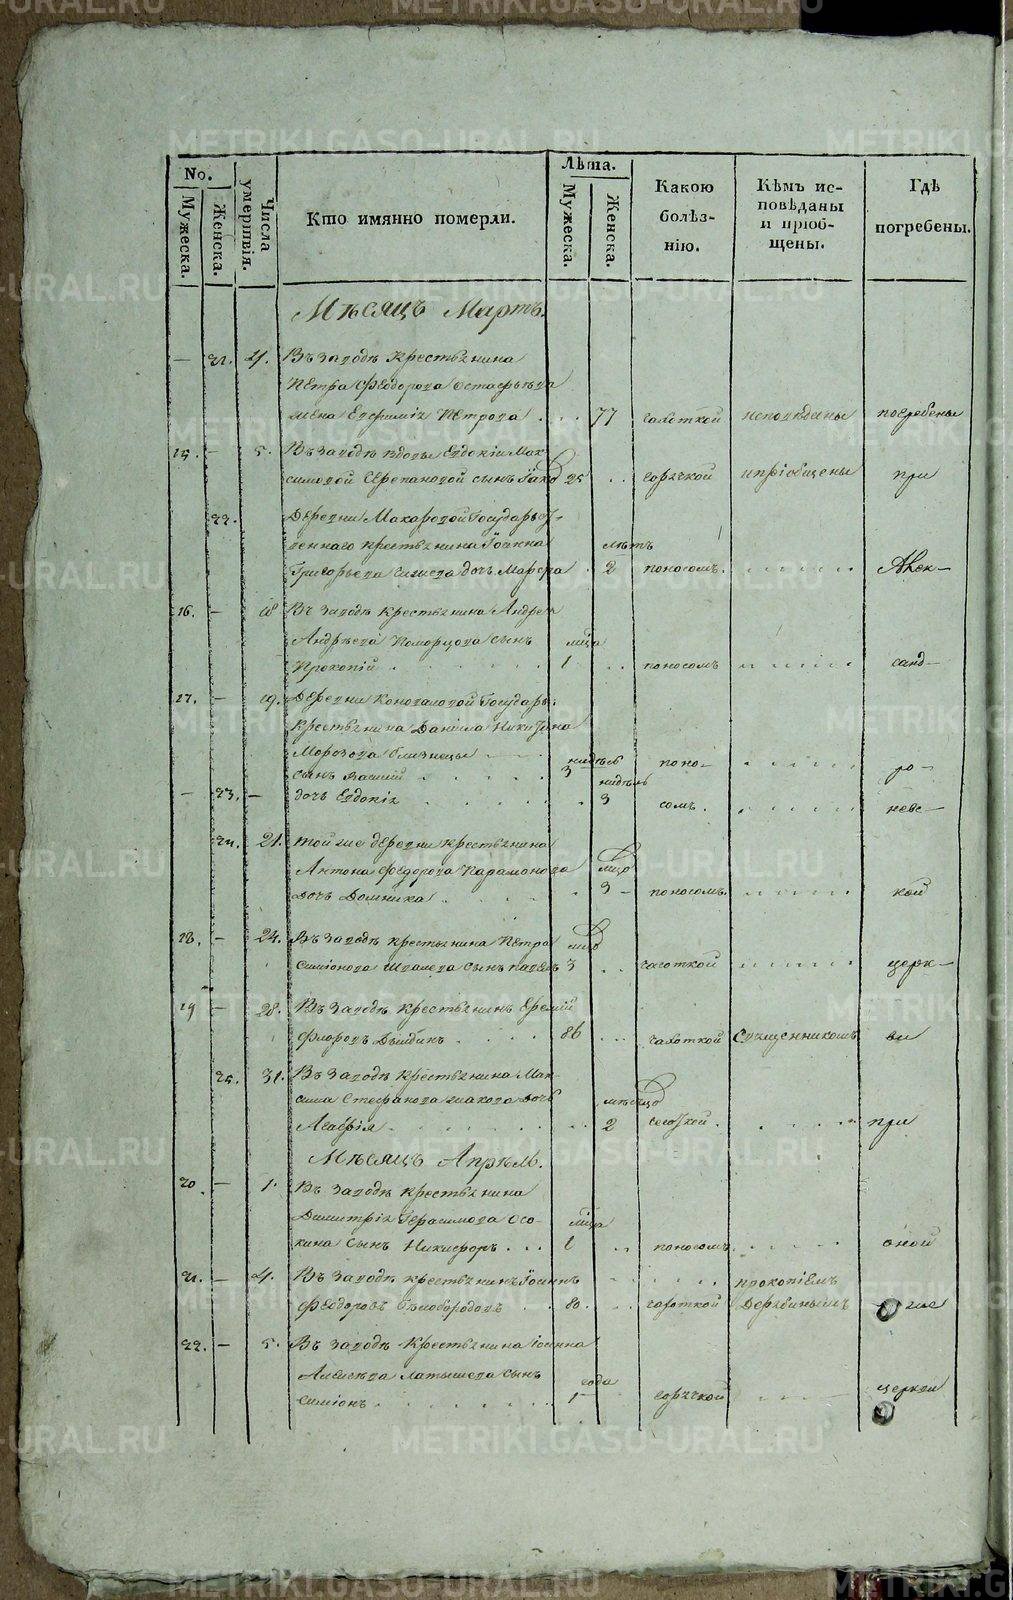 METRIKI.GASO-URAL.RU
No.
Мужеска.
Женска.
Числа умершвія.
Кто имянно померли.
Лѣта.
Мужеска.
Женска.
Какою болѣз-нію.
Кѣмъ ис-повѣданы и пріоб-щены.
Гдѣ погребены.
Мѣсяцъ Мартъ.
— 21. 4. Въ Заводѣ крестьянина
Петра Феодорова
жена Евфимія Петрова . . . 77 чахоткой исповѣданы погребены
15. — 5. Въ Заводѣ вдовы Евдокіи Мак-
симовой сынъ 25 . . горячкой и пріобщены при
22. Деревни Макаровой Государст-
веннаго крестьянина Іоанна лѣтъ
Григорьева дочь Марфа . 2 поносомъ. Алек-
16. — 18 Въ Заводѣ крестьянина Андрея
Андрѣева Поморцова сынъ мѣца
Прокопій 1 . . поносомъ санд-
17. — 19. Деревни Коноваловой Государ.
крестьянина Даніила Никитина
Морозова близнецы недѣль
сынъ 3 поно- ро-
— 23. — дочь Евдокія недѣль 3 сомъ. невс-
24. 21. той же деревни крестьянина
Антона Федорова Парамонова мѣцо
дочь Домника 3 — поносомъ. кой
18. — 24. Въ Заводѣ крестьянина Петра
Симіонова сынъ 3 . . чахоткой церк-
19 — 28. Въ Заводѣ крестьянинъ Еремій
Флоровъ 86 . . . чахоткой Священникомъ ви
25. 31. Въ Заводѣ крестьянина Мак-
сима Стефанова дочь мѣсяцо
Агафія 2 при
Мѣсяцъ Апрѣль.
20. — 1. Въ Заводѣ крестьянина
Димитрія Герасимова Осо-
кина сынъ Никифоръ . . . мѣца 1 . . поносомъ. оной
21. — 4. Въ Заводѣ крестьянинъ Іоаннъ прокопіемъ
Феодоровъ Бѣлобородовъ . . 80. . . чахоткой Дерябинымъ же
22. — 5. Въ Заводѣ Крестьянина Іоанна
Алексѣева Латышева сынъ года
Симіонъ 1 горячкой церкви